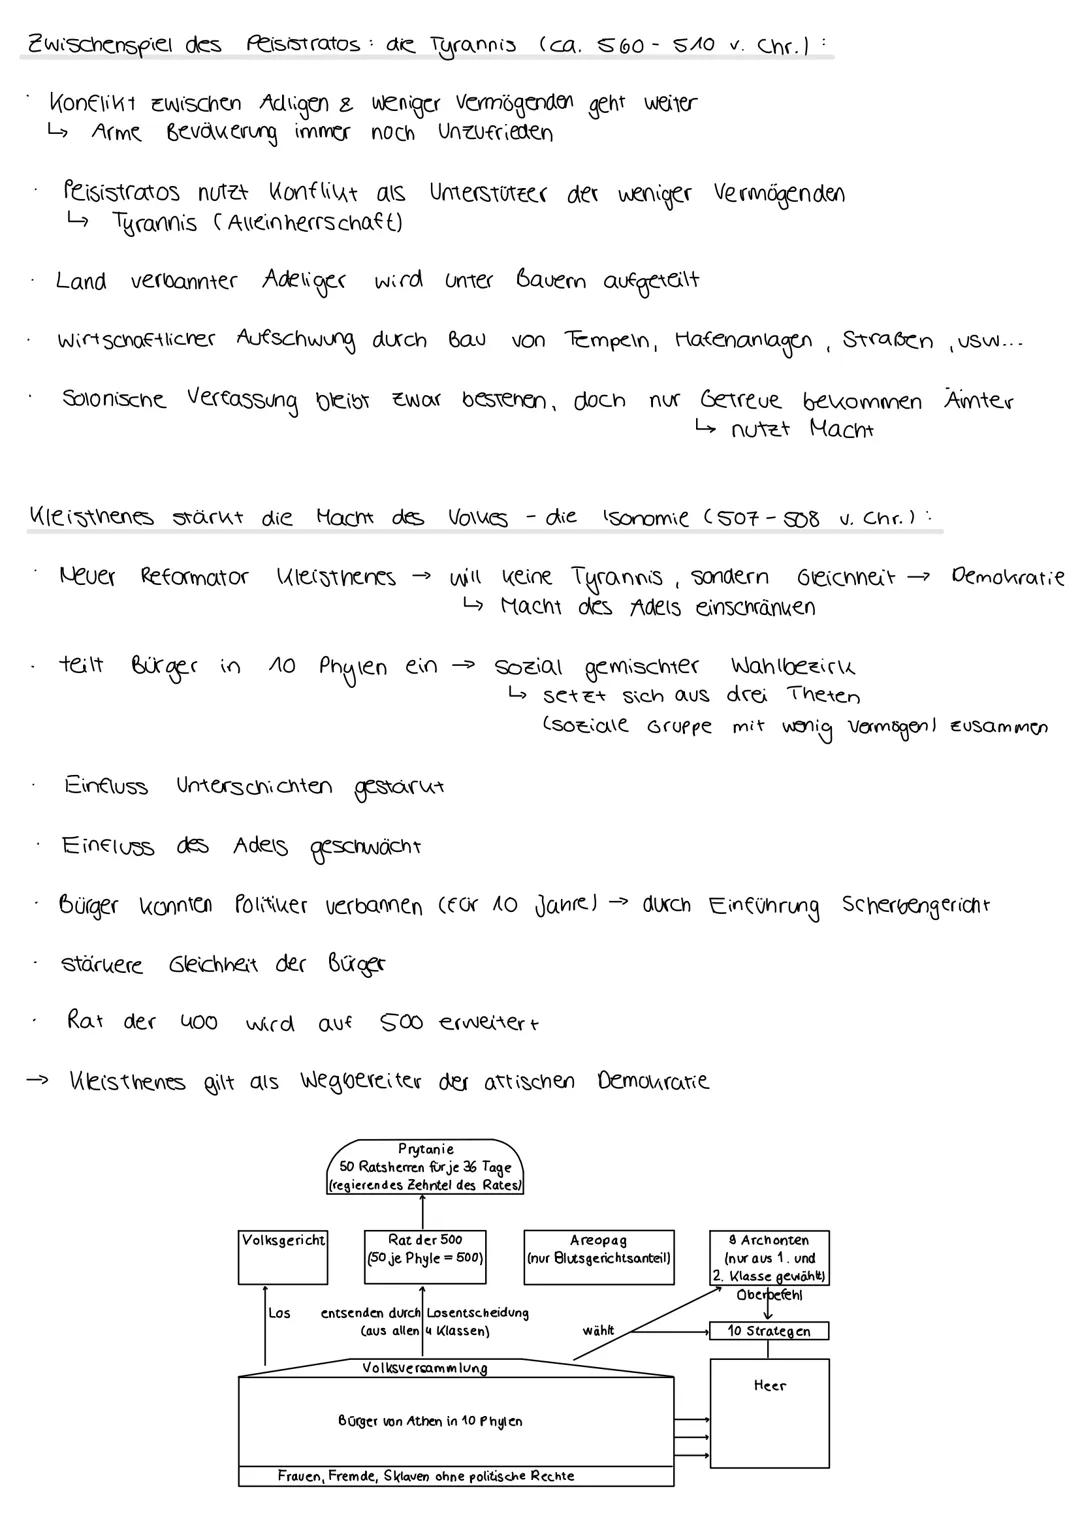 Zwischenspiel des Peisistratos : die Tyrannis (ca. 560 - 510 v. Chr.) :
· Konflikt zwischen Adligen & weniger Vermögenden geht weiter
↳ Arme Bevölkerung immer noch Unzufrieden
· Peisistratos nutzt Konflikt als Unterstützer der weniger Vermögenden
↳ Tyrannis (Alleinherrschaft)
· Land verbannter Adeliger wird unter Bauern aufgeteilt
· Wirtschaftlicher Aufschwung durch Bau von Tempeln, Hafenanlagen, Straßen, usw...
· Solonische Verfassung bleibt zwar bestehen, doch nur Getreue bekommen Ämter
↳ nutzt Macht
Kleisthenes stärkt die Macht des Volkes - die Isonomie (507 - 508 v. Chr.) :
· Neuer Reformator Kleisthenes → will keine Tyrannis, sondern Gleichheit → Demokratie
↳ Macht des Adels einschränken
· teilt Bürger in 10 Phylen ein → sozial gemischter Wahlbezirk
↳ setzt sich aus drei Theten
(soziale Gruppe mit wenig Vermögen) zusammen
· Einfluss Unterschichten gestärkt
· Einfluss des Adels geschwächt
· Bürger konnten Politiker verbannen (für 10 Jahre) → durch Einführung Scherbengericht
· stärkere Gleichheit der Bürger
· Rat der 400 wird auf 500 erweitert
→ Kleisthenes gilt als Wegbereiter der attischen Demokratie
Prytanie
50 Ratsherren für je 36 Tage
(regierendes Zehntel des Rates)
Volksgericht
Rat der 500
(50 je Phyle = 500)
Areopag
(nur Blutsgerichtsanteil)
9 Archonten
(nur aus 1. und
2. Klasse gewählt)
Oberbefehl
Los
entsenden durch Losentscheidung
(aus allen 4 Klassen)
wählt
10 Strategen
Volksversammlung
Heer
Bürger von Athen in 10 Phylen
Frauen, Fremde, Sklaven ohne politische Rechte